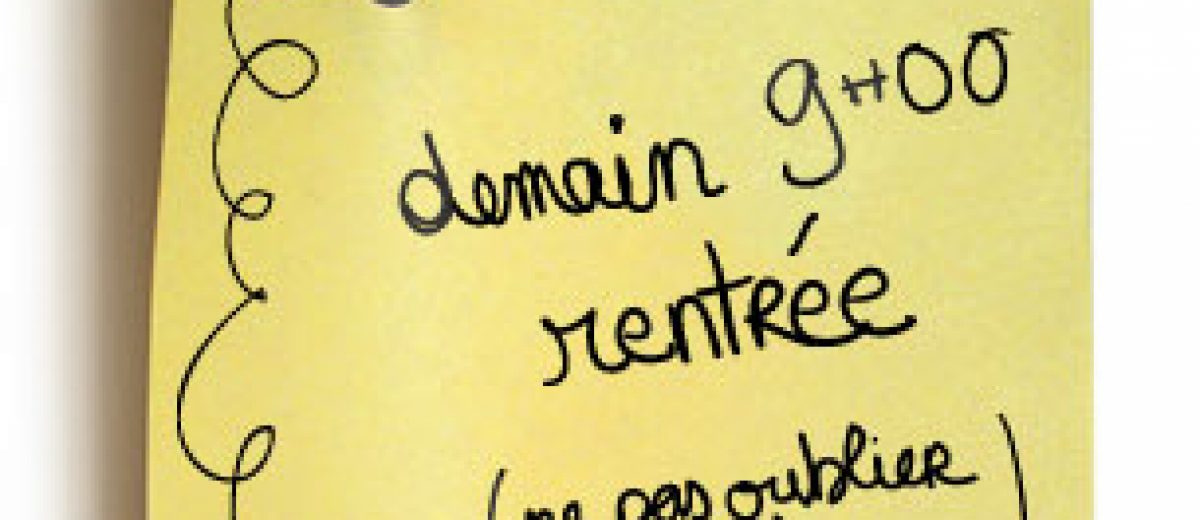 demain 9H00
rentrée
(ne pas oublier)